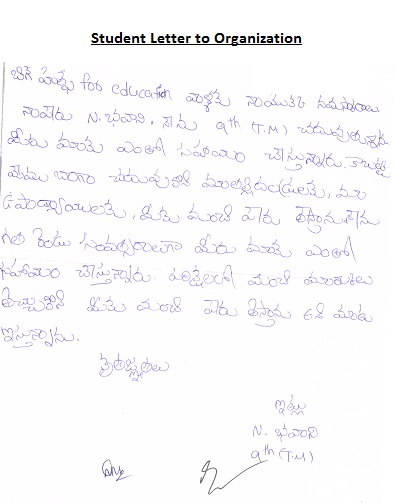 Student Letter to Organization
బిగ్ హెల్ప్ for education వాళ్ళకు నాయొక్క నమస్కారాలు
నాపేరు N. భవాని. నేను 9th (T.M) చదువుతున్నాను
మీరు మాకు ఎంతో సహాయం చేస్తున్నారు. కాబట్టి
మేము బాగా చదువుకొని మా తల్లిదండ్రులకు, మా
ఉపాధ్యాయులకు, మీకు మంచి పేరు తెస్తాను. నేను
గత రెండు సంవత్సరాలుగా మీరు మాకు ఎంతో
సహాయం చేస్తున్నారు. పరీక్షలలో మంచి మార్కులు
తెచ్చుకొని మీకు మంచి పేరు తెస్తాను అని మాట
ఇస్తున్నాను.
కృతజ్ఞతలు
ఇట్లు
N. భవాని
9th (T.M)